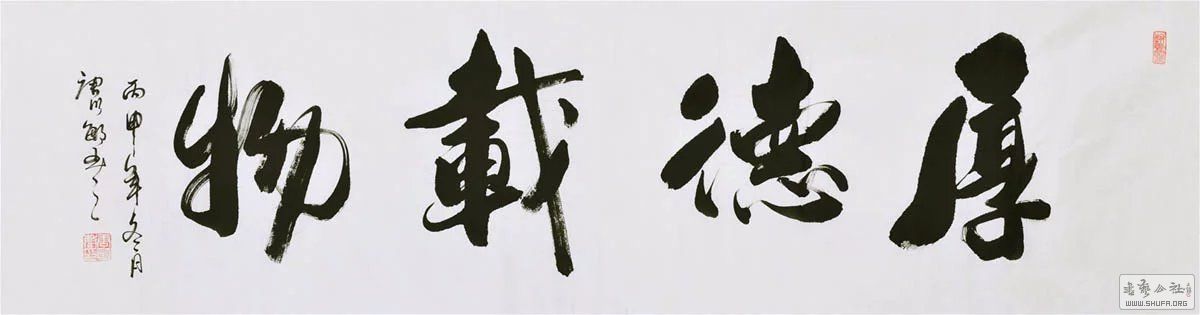 厚德載物
丙申年冬月
书艺公社
WWW.SHUFA.ORG